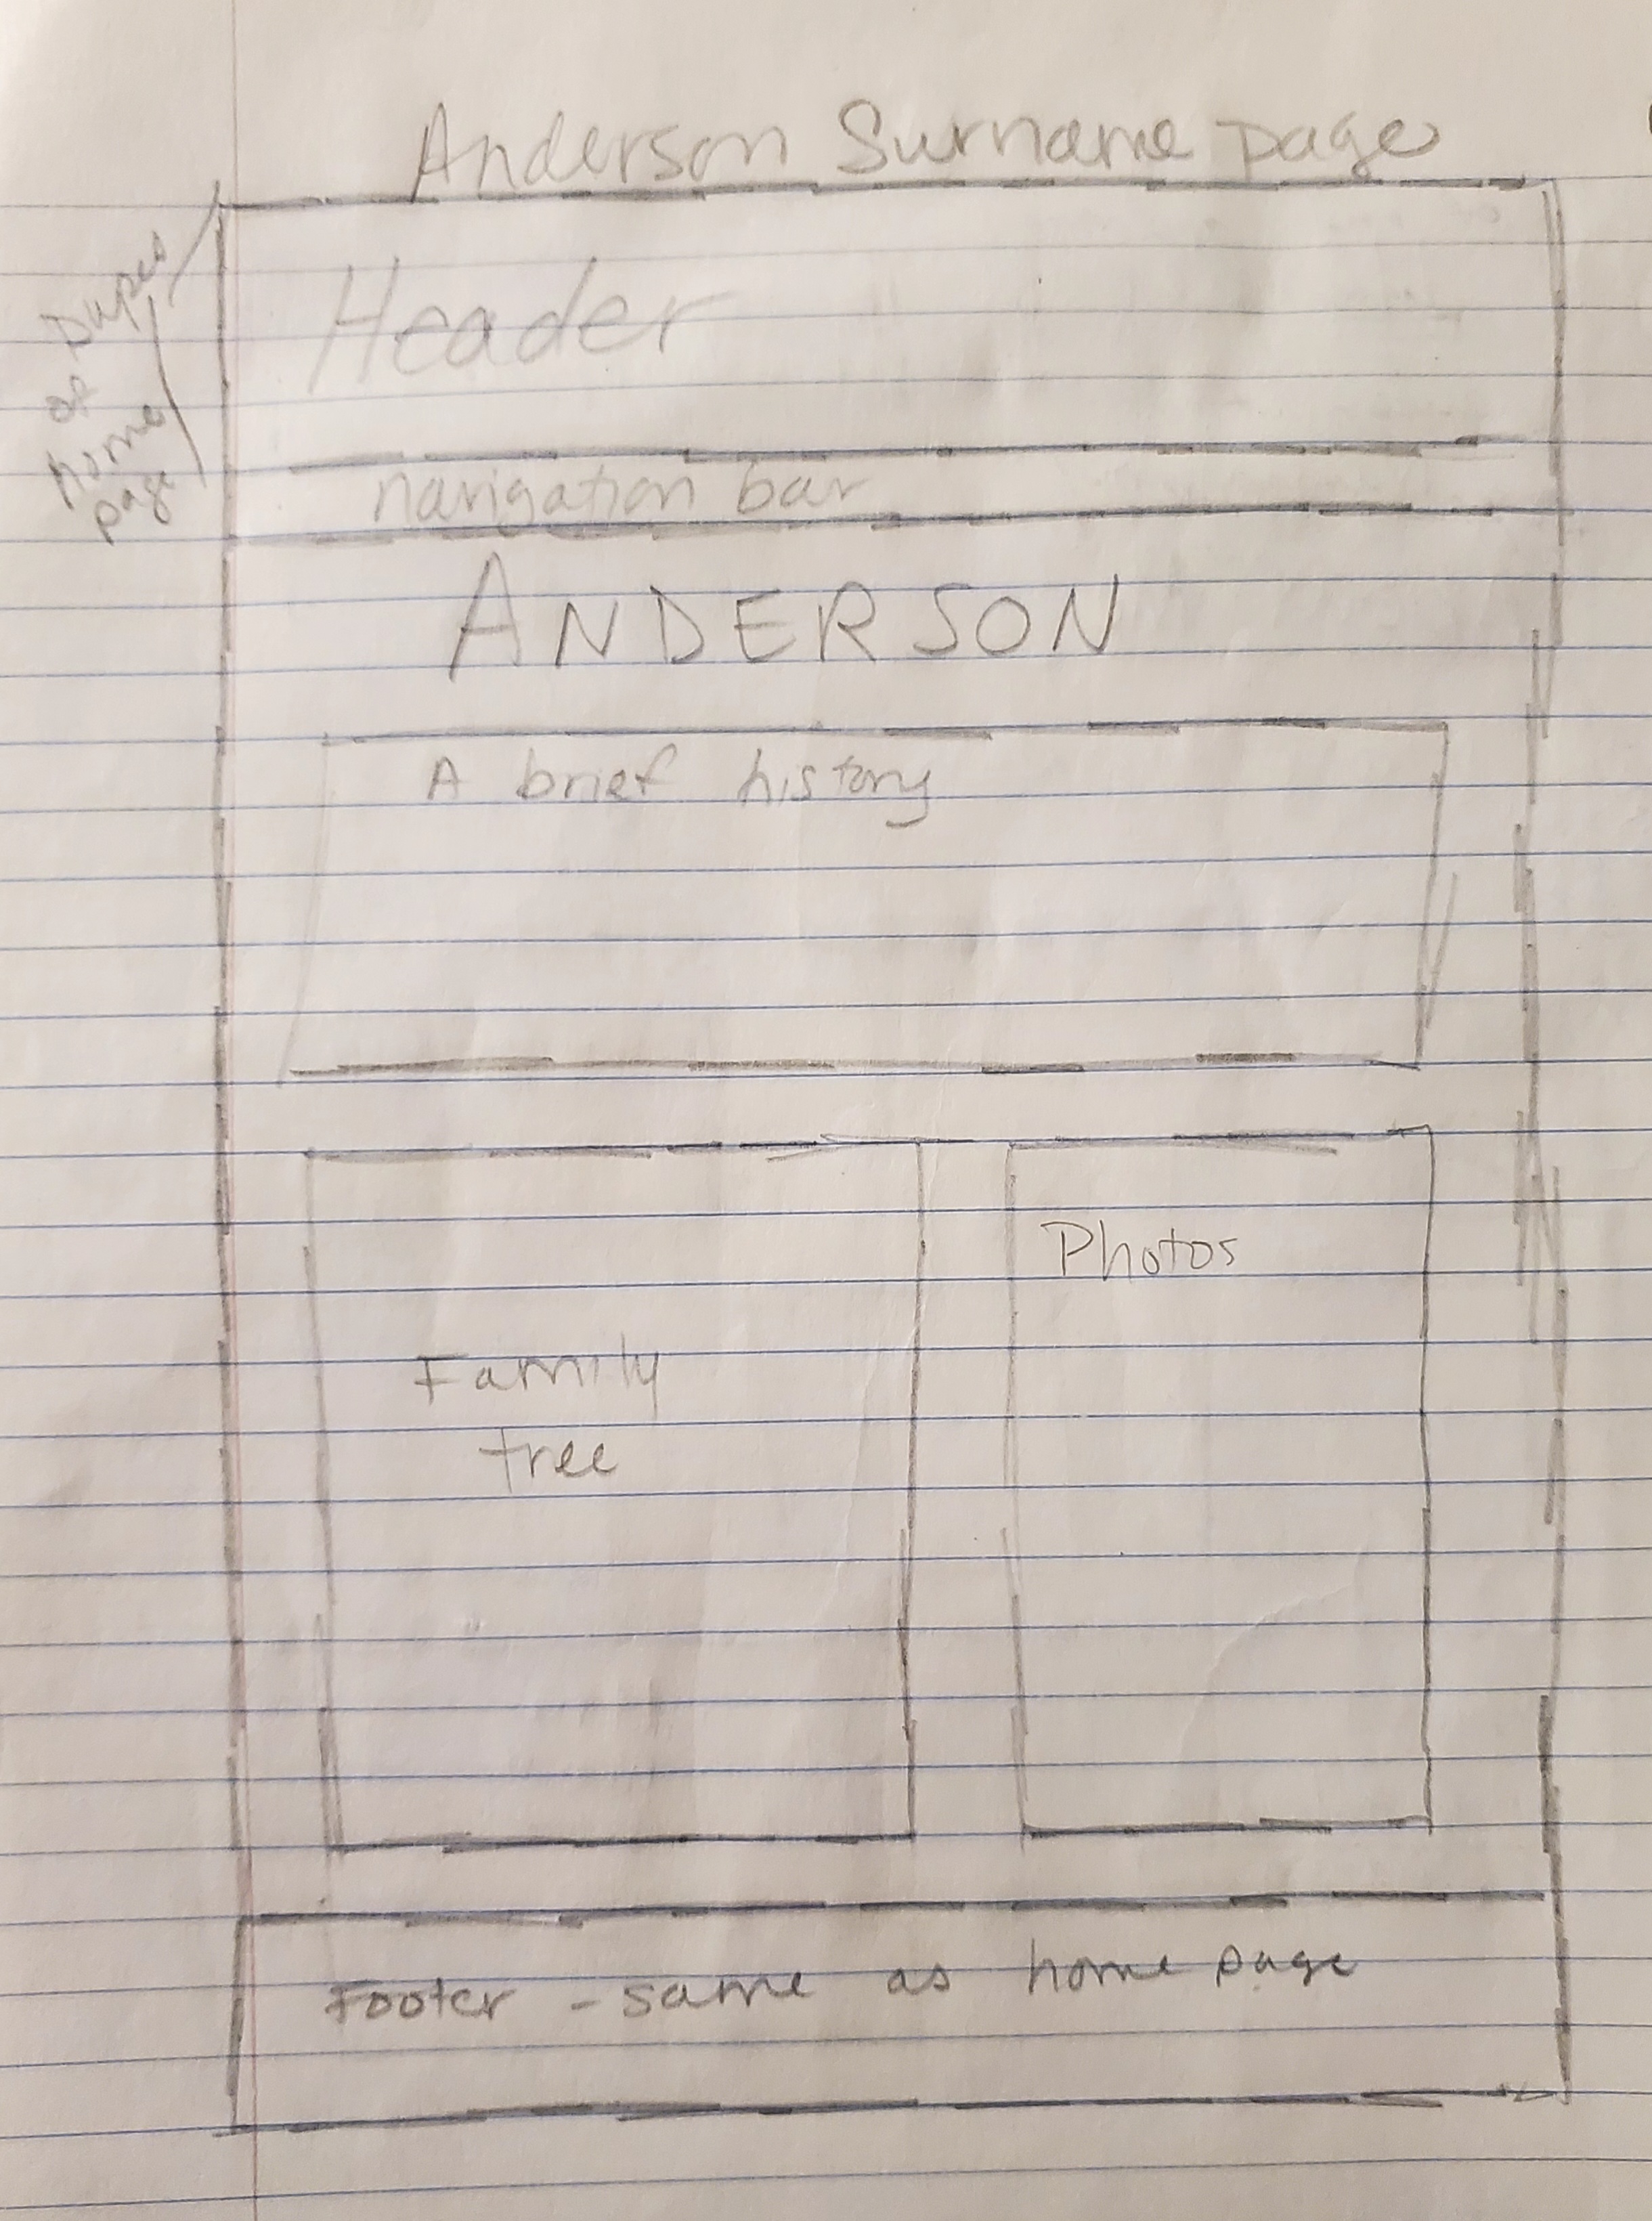 Anderson Surname page
Dupes
of
home
page
Header
navigation bar
ANDERSON
A brief history
Photos
Family
tree
Footer - same as home page